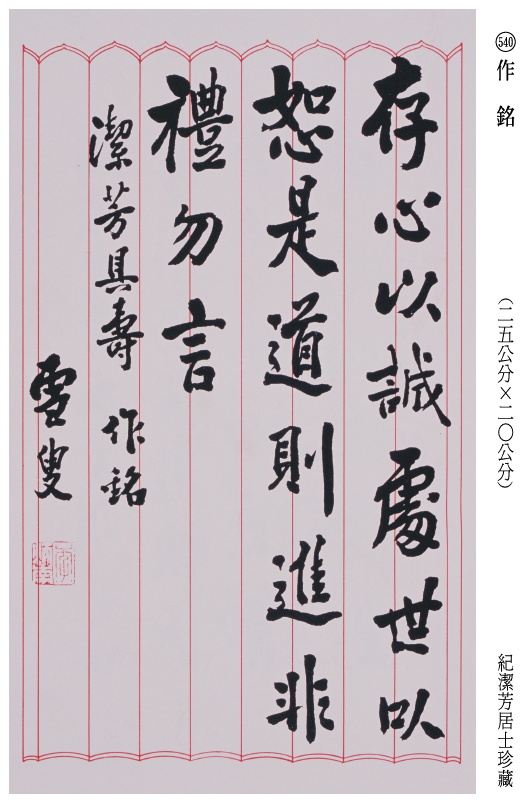 540 作銘
(二五公分×二〇公分)
紀潔芳居士珍藏
存心以誠處世以
恕是道則進非
禮勿言
潔芳具壽 作銘
雪叟